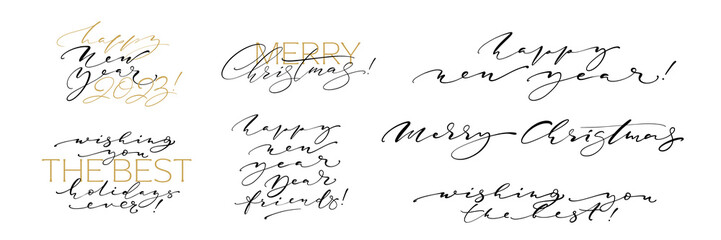 happy
New
Year,
2023!
MERRY
Christmas!
happy
new year!
wishing
you
THE BEST
holidays
ever!
happy
new
year
Dear
friends!
Merry Christmas
wishing you
the best!